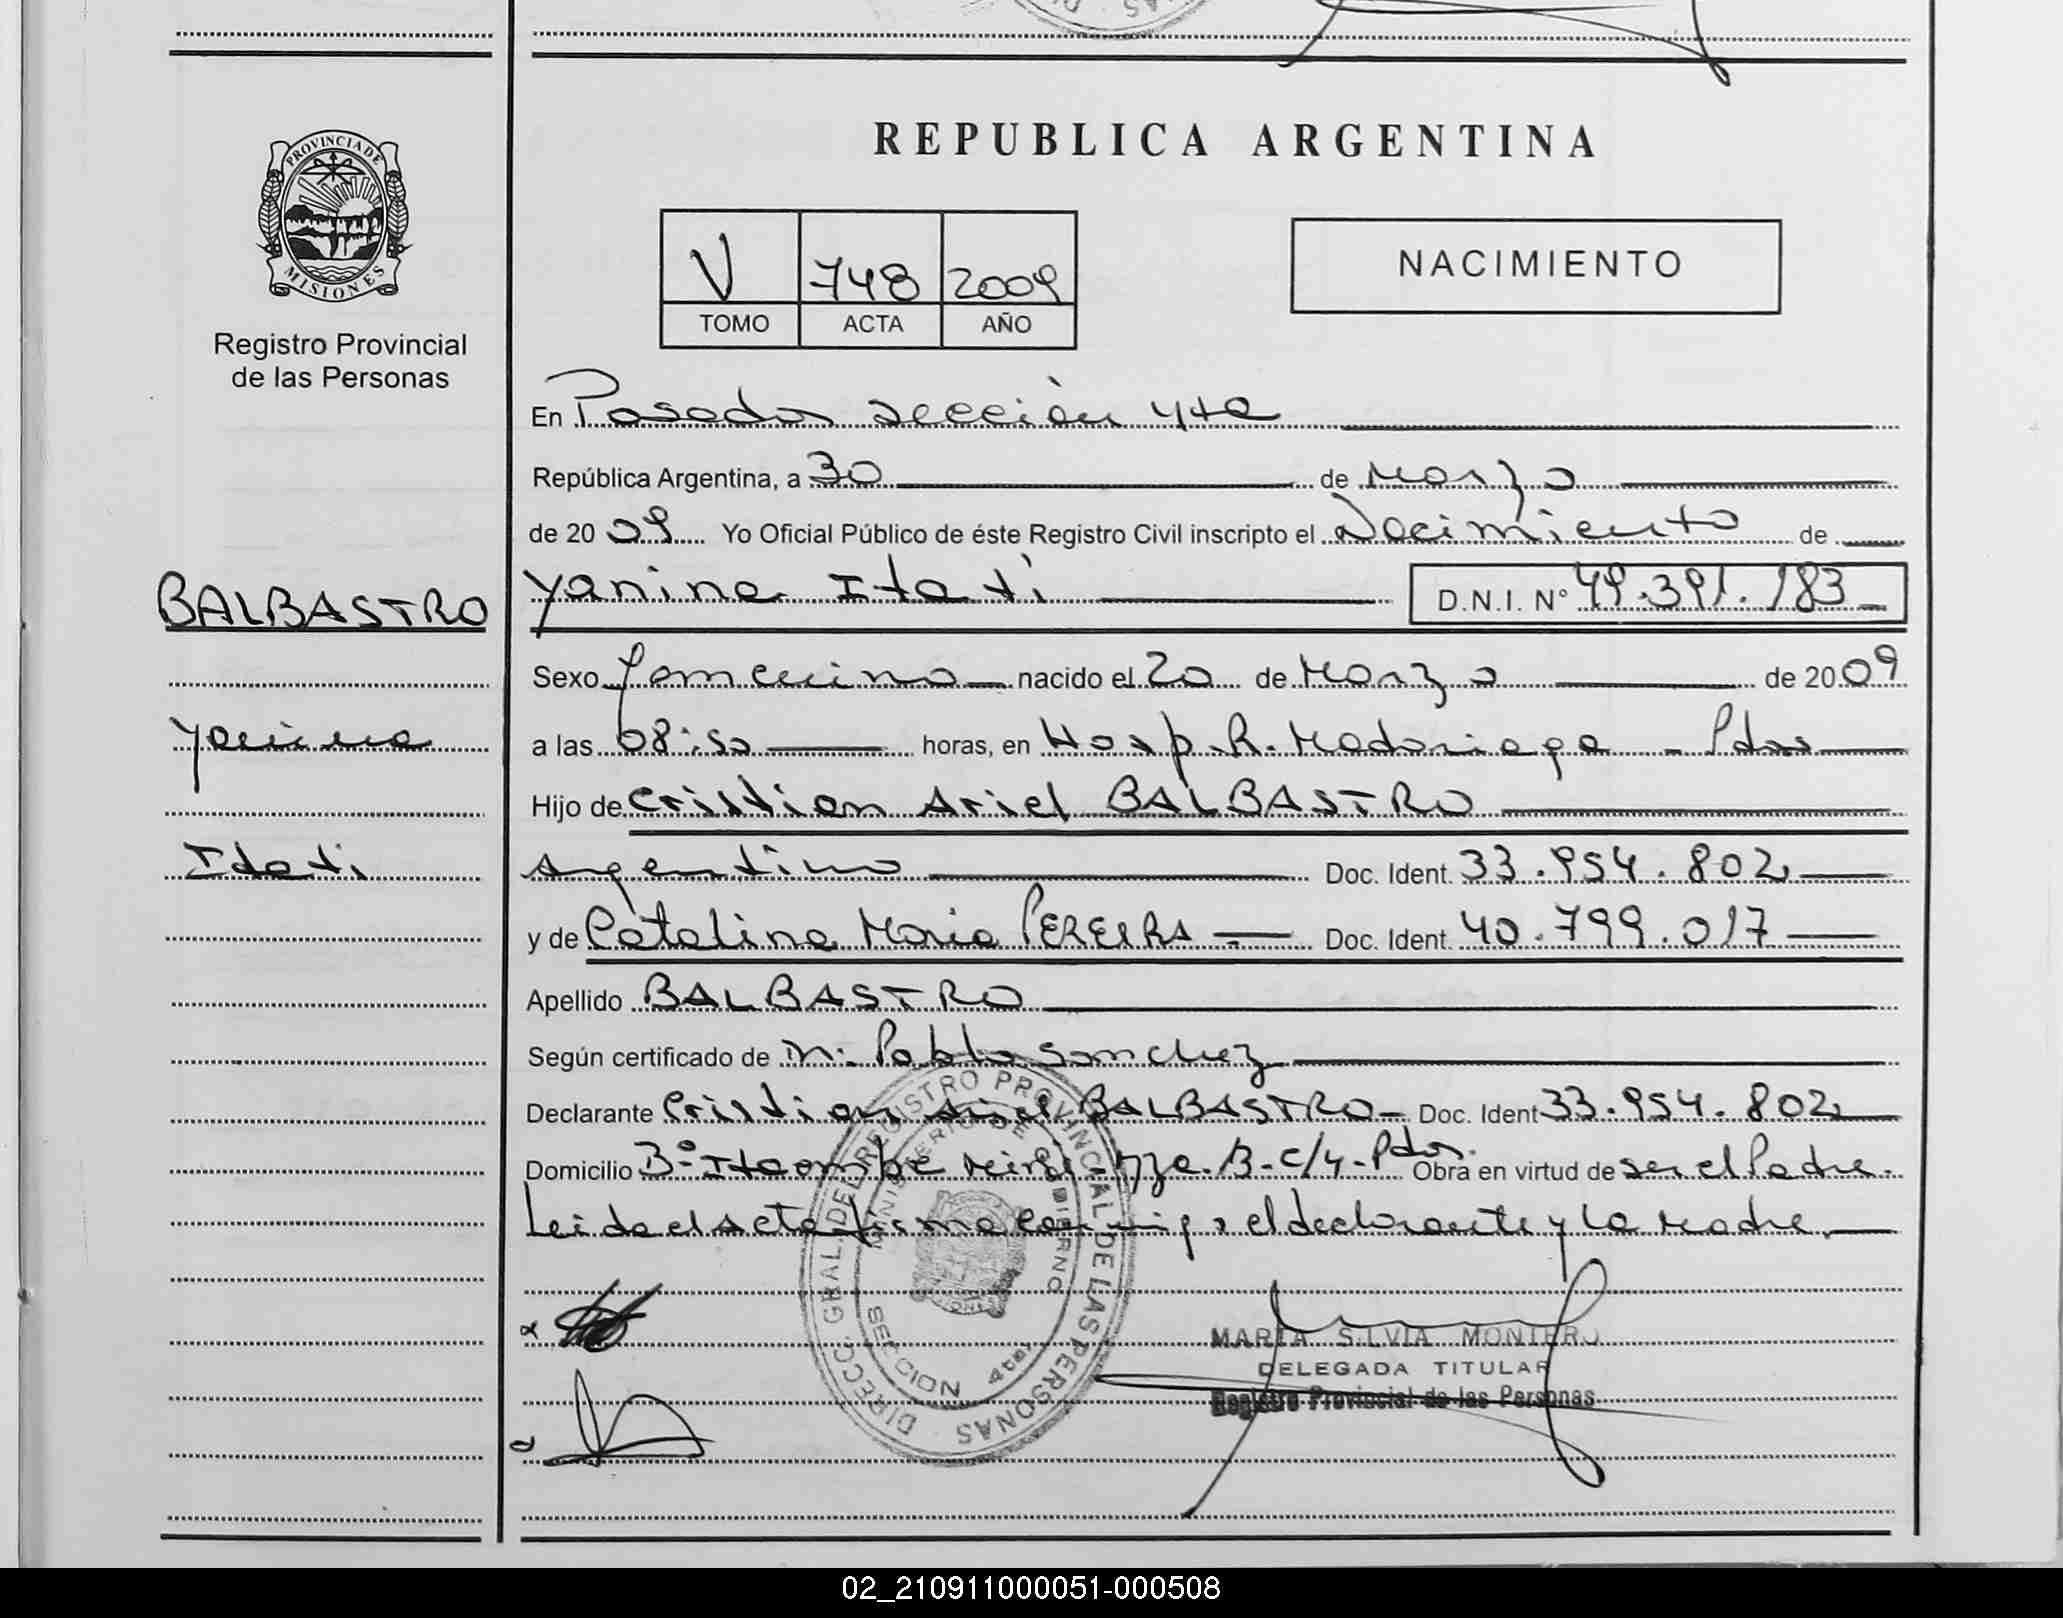 PROVINCIA DE
MISIONES
Registro Provincial
de las Personas
BALBASTRO
Yanina
Itati
REPUBLICA ARGENTINA
V 748 2009
TOMO ACTA AÑO
NACIMIENTO
En Posadas sección 4ta
República Argentina, a 30 de Marzo
de 20 09 Yo Oficial Público de éste Registro Civil inscripto el Nacimiento de
Yanina Itatí D.N.I. N° 49.391.183
Sexo femenino nacido el 20 de Marzo de 20 09
a las 08:50 horas, en Hosp. R. Madariaga - Pdas
Hijo de Cristian Ariel BALBASTRO
argentino Doc. Ident. 33.954.802
y de Catalina Maria PEREIRA Doc. Ident. 40.799.017
Apellido BALBASTRO
Según certificado de Pablo Sanchez
Declarante Cristian Ariel BALBASTRO Doc. Ident 33.954.802
Domicilio B° Itaembe Mini - Mza. B - C/4 - Pdas. Obra en virtud de ser el Padre.
Leida el acta firma conmigo el declarante y la madre.
DIRECC. GRAL. DEL REGISTRO PROVINCIAL DE LAS PERSONAS
MINISTERIO DE GOBIERNO
SECCION 4ta.
MARIA SILVIA MONTERO
DELEGADA TITULAR
Registro Provincial de las Personas
02_210911000051-000508